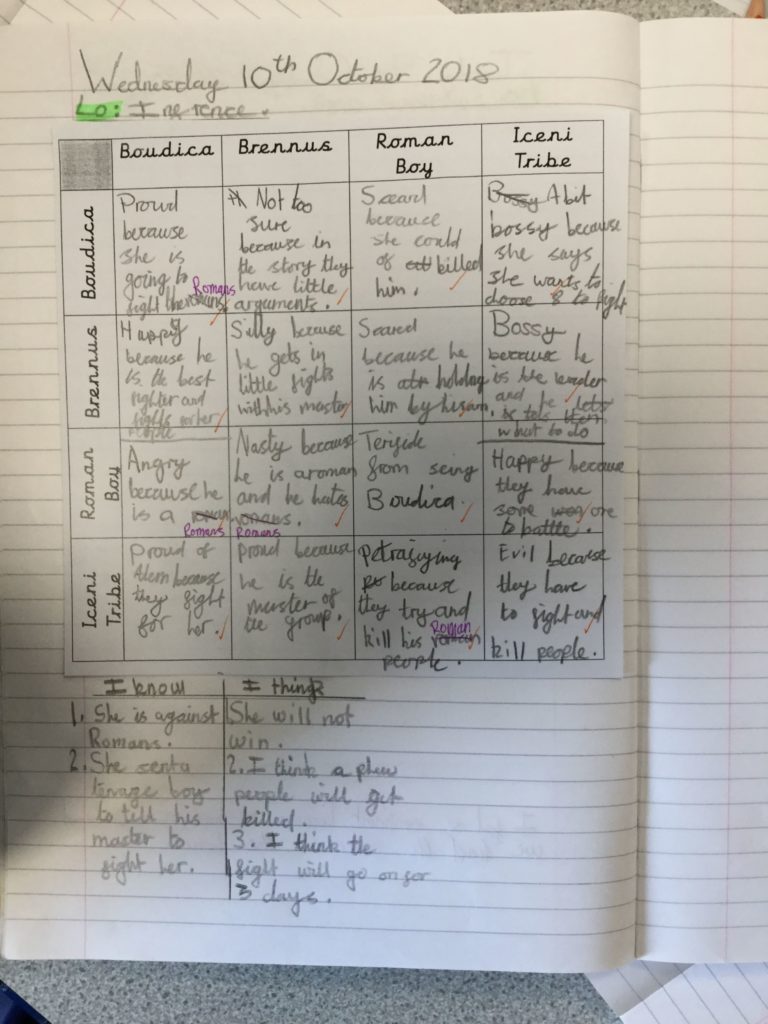 Wednesday 10th October 2018
LO: Inerence.
Boudica
Brennus
Roman
Boy
Iceni
Tribe
Boudica
Proud
because
she is
going to
fight the Romans
Not too
sure
because in
the story they
have little
arguments.
Scard
because
she could
of killed
him.
Bossy A bit
bossy because
she says
she wants to
to fight
Brennus
Happy
because he
is the best
fighter and
fights
people
Silly because
he gets in
little fights
with his master
Scared
because he
is holding
him by
Bossy
because he
is the leader
and he lets
is tels them
what to do
Roman
Boy
Angry
because he
is a
Romans
Nasty because
he is a roman
and he hates
romans.
Romans
from seing
Boudica.
Happy because
they have
some one
to battle.
Iceni
Tribe
Proud of
them because
they fight
for her.
Proud because
he is the
master of
the group.
because
they try and
kill his Roman
people.
Evil because
they have
to fight and
kill people.
I know
I think
1. She is against
Romans.
She will not
win.
2. She sent a
tenage boy
to till his
master to
fight her.
2. I think a phew
people will get
killed.
3. I think the
fight will go on for
3 days.